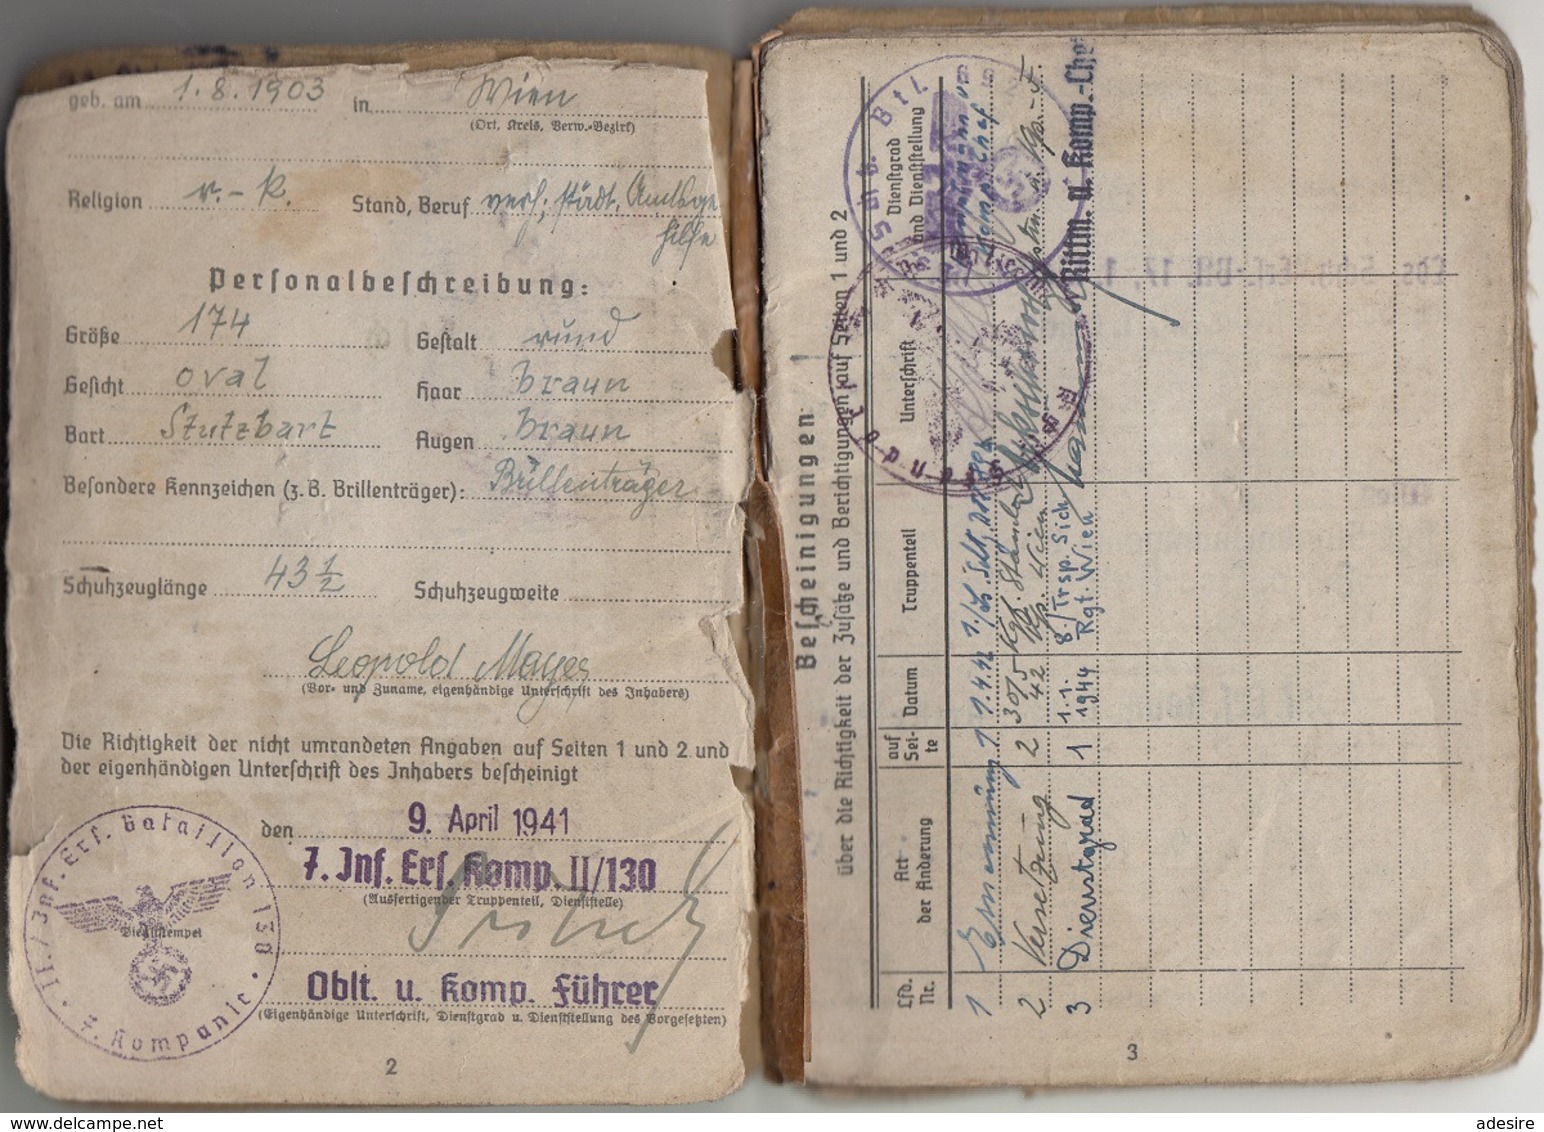 geb. am 1.8.1903 in Wien
(Ort, Kreis, Verw.-Bezirk)
Religion r.-k. Stand, Beruf verh., städt. Amtsge
hilfe
Personalbeschreibung:
Größe 174 Gestalt rund
Gesicht oval Haar braun
Bart Stutzbart Augen braun
Besondere Kennzeichen (z.B. Brillenträger): Brillenträger
Schuhzeuglänge 43 1/2 Schuhzeugweite
Leopold Mayer
(Vor- und Zuname, eigenhändige Unterschrift des Inhabers)
Die Richtigkeit der nicht umrandeten Angaben auf Seiten 1 und 2 und
der eigenhändigen Unterschrift des Inhabers bescheinigt
den 9. April 1941
7. Inf. Ers. Komp. II/130
(Ausfertigender Truppenteil, Dienststelle)
Oblt. u. Komp. Führer
(Eigenhändige Unterschrift, Dienstgrad u. Dienststellung des Vorgesetzten)
II./Inf. Ers. Bataillon 130
7. Kompanie
Dienststempel
2
Bescheinigungen
über die Richtigkeit der Zusätze und Berichtigungen auf Seiten 1 und 2
Lfd. Nr.
Art der Änderung
auf Sei-te
Datum
Truppenteil
Unterschrift
Dienstgrad und Dienststellung
1 Ernennung 1 1.4.42
2 Versetzung 2 30/5 42 Wien
3 Dienstgrad 1 1.1. 1944 8./Trsp. Sich Rgt. Wien Rittm. u. Komp.-Chef
Btl.
3
adesire
www.delcampe.net